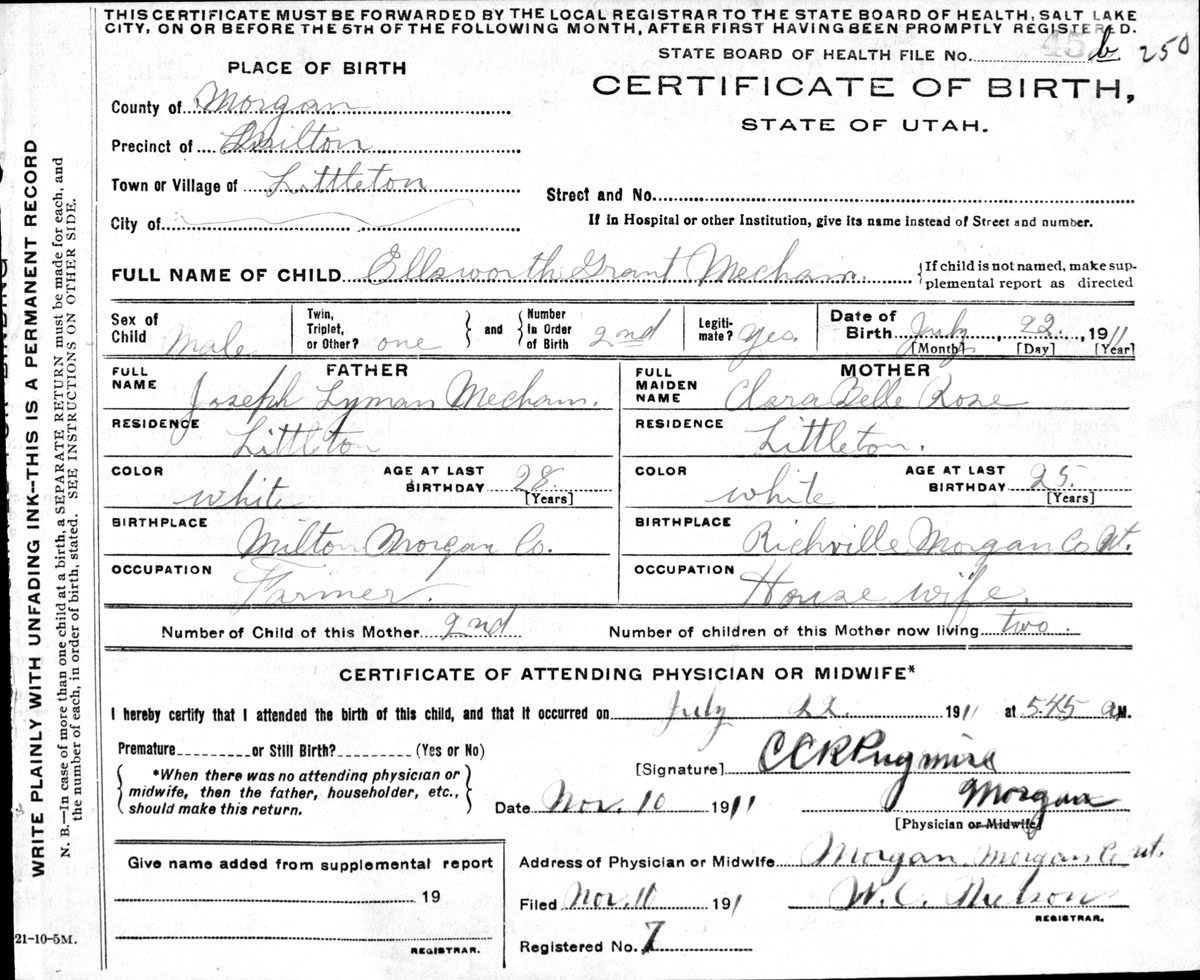 THIS CERTIFICATE MUST BE FORWARDED BY THE LOCAL REGISTRAR TO THE STATE BOARD OF HEALTH, SALT LAKE
CITY, ON OR BEFORE THE 5TH OF THE FOLLOWING MONTH, AFTER FIRST HAVING BEEN PROMPTLY REGISTERED.
STATE BOARD OF HEALTH FILE No. 45 b 250
PLACE OF BIRTH
CERTIFICATE OF BIRTH,
STATE OF UTAH.
County of Morgan
Precinct of Milton
Town or Village of Littleton
Street and No.
City of
If in Hospital or other Institution, give its name instead of Street and number.
FULL NAME OF CHILD Ellsworth Grant Mecham. {If child is not named, make sup-
plemental report as directed
Sex of Child Male
Twin, Triplet, or Other? one } and { Number In Order of Birth 2nd
Legiti-mate? yes.
Date of Birth July 22, 1911
[Month] [Day] [Year]
FATHER
FULL NAME Joseph Lyman Mecham.
RESIDENCE Littleton
COLOR white AGE AT LAST BIRTHDAY 28 [Years]
BIRTHPLACE Milton Morgan Co.
OCCUPATION Farmer.
MOTHER
FULL MAIDEN NAME Clara Belle Rose
RESIDENCE Littleton.
COLOR white AGE AT LAST BIRTHDAY 25. [Years]
BIRTHPLACE Richville Morgan Co Ut.
OCCUPATION House wife.
Number of Child of this Mother 2nd Number of children of this Mother now living two.
CERTIFICATE OF ATTENDING PHYSICIAN OR MIDWIFE*
I hereby certify that I attended the birth of this child, and that it occurred on July 22. 1911 at 5.45 a M.
Premature or Still Birth? (Yes or No)
{ *When there was no attending physician or
midwife, then the father, householder, etc.,
should make this return. }
[Signature] C C R Pugmire
Date Nov. 10 1911 Morgan
[Physician or Midwife]
Give name added from supplemental report
19
REGISTRAR.
Address of Physician or Midwife Morgan Morgan Co ut.
Filed Nov. 10 191 W. C. Nielson
REGISTRAR.
Registered No. 7
WRITE PLAINLY WITH UNFADING INK--THIS IS A PERMANENT RECORD
N. B.—In case of more than one child at a birth, a SEPARATE RETURN must be made for each, and
the number of each, in order of birth, stated. SEE INSTRUCTIONS ON OTHER SIDE.
21-10-5M.